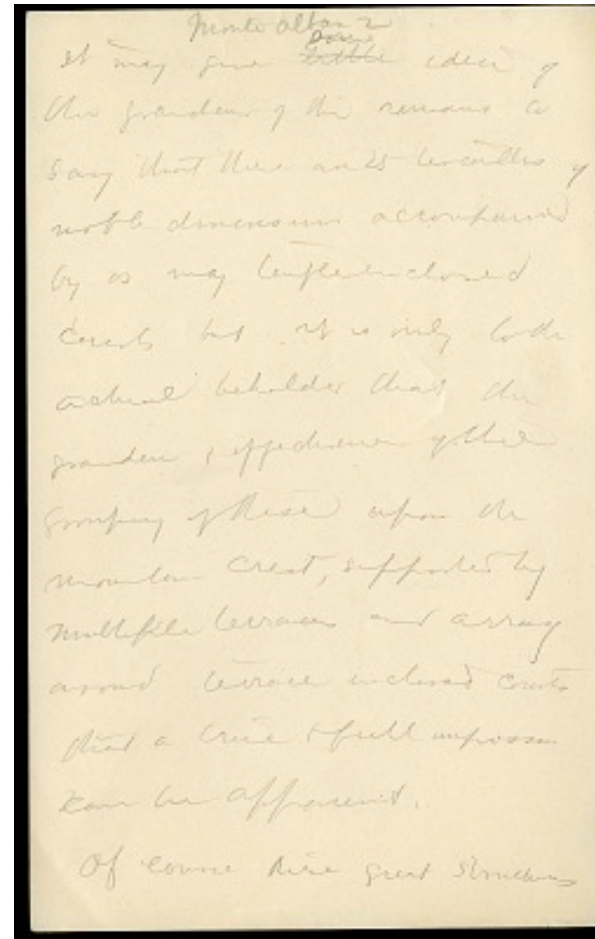 Monte Alban 2
It may give some little idea of
the grandeur of the remains to
say that there are 25 terraces of
noble dimensions accompanied
by as many temple enclosed
Courts but it is only to the
actual beholder that the
grandeur & effectiveness of the
grouping of these upon the
mountain crest, supported by
multiple terraces and array
around terrace inclosed courts
that a true & full impression
can be apparent.
Of course these great structures